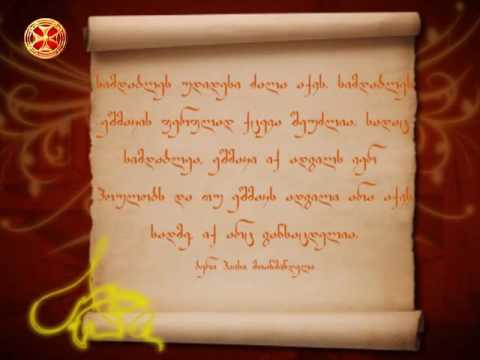 სიმდაბლეს უდიდესი ძალა აქვს. სიმდაბლეს
ეშმაკის ფერფლად ქცევა შეუძლია. სადაც
სიმდაბლეა, ეშმაკი იქ ადგილს ვერ
პოულობს და თუ ეშმაკს ადგილი არა აქვს
სადმე, იქ არც განსაცდელია.
ბერი პაისი მთაწმინდელი